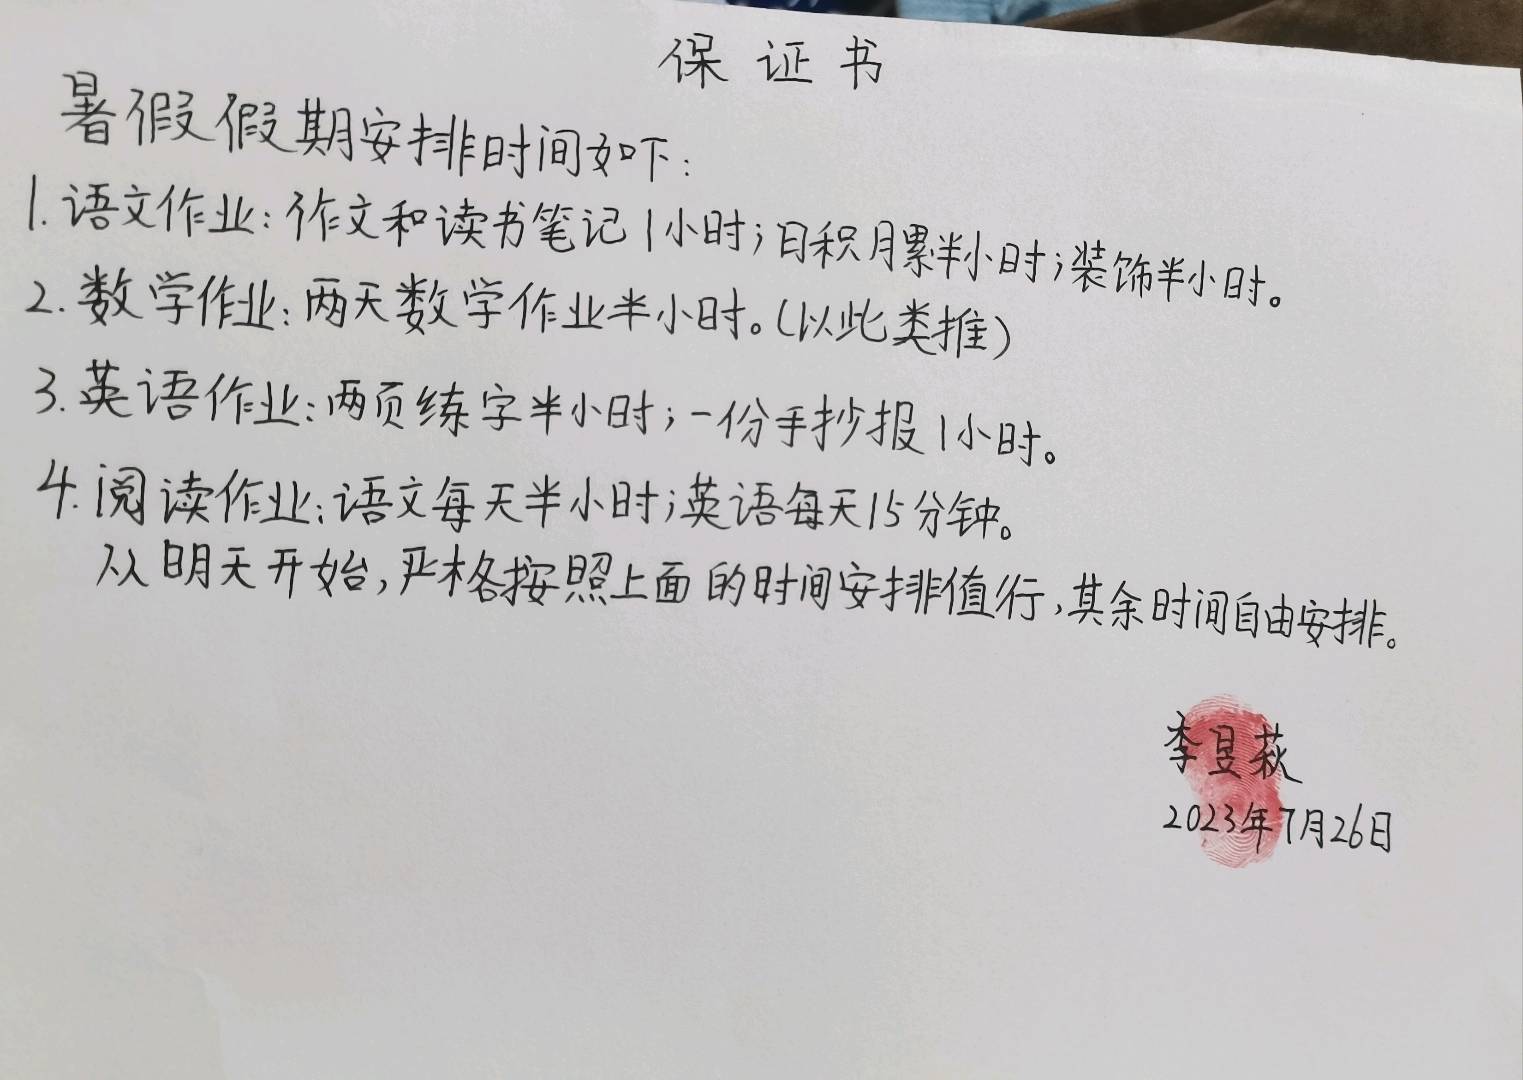 保证书
暑假假期安排时间如下:
1.语文作业:作文和读书笔记1小时;日积月累半小时;装饰半小时。
2.数学作业:两天数学作业半小时。(以此类推)
3.英语作业:两页练字半小时;一份手抄报1小时。
4.阅读作业:语文每天半小时;英语每天15分钟。
从明天开始,严格按照上面的时间安排值行,其余时间自由安排。
李昱萩
2023年7月26日